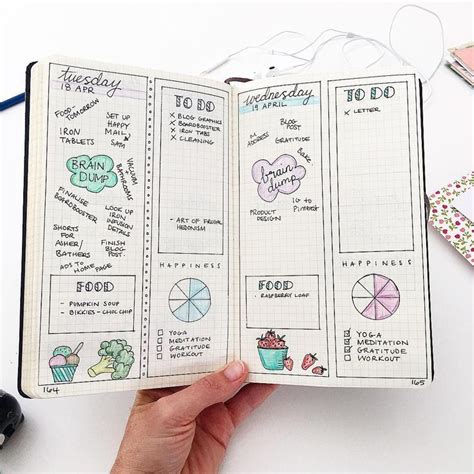 tuesday
18 APR
FOOD -
TOMORROW
SET UP
HAPPY
MAIL
IRON
TABLETS
SATH
VACUUM
+
BATHROOMS
BRAIN
DUMP
FINALISE
BOARDBOOSTER
LOOK UP
IRON
INFUSION
DETAILS
SHORTS
FOR
ASHER/
BATHERS
FINISH
BLOG
POST
ADS TO HOME PAGE
FOOD
- PUMPKIN SOUP
- BIKKIES - CHOC CHIP
164
TO DO
x BLOG GRAPHICS
x BOARDBOOSTER
x IRON TABS
x CLEANING
- ART OF FRUGAL
HEDONISM
HAPPINESS
YOGA
MEDITATION
GRATITUDE
WORKOUT
wednesday
19 APRIL
ADDRESS
BLOG
POST
GRATITUDE
Bake
brain
dump
PRODUCT
DESIGN
IG to
Pinterest
FOOD
- RASPBERRY LOAF
TO DO
x LETTER
HAPPINESS
YOGA
MEDITATION
GRATITUDE
WORKOUT
165